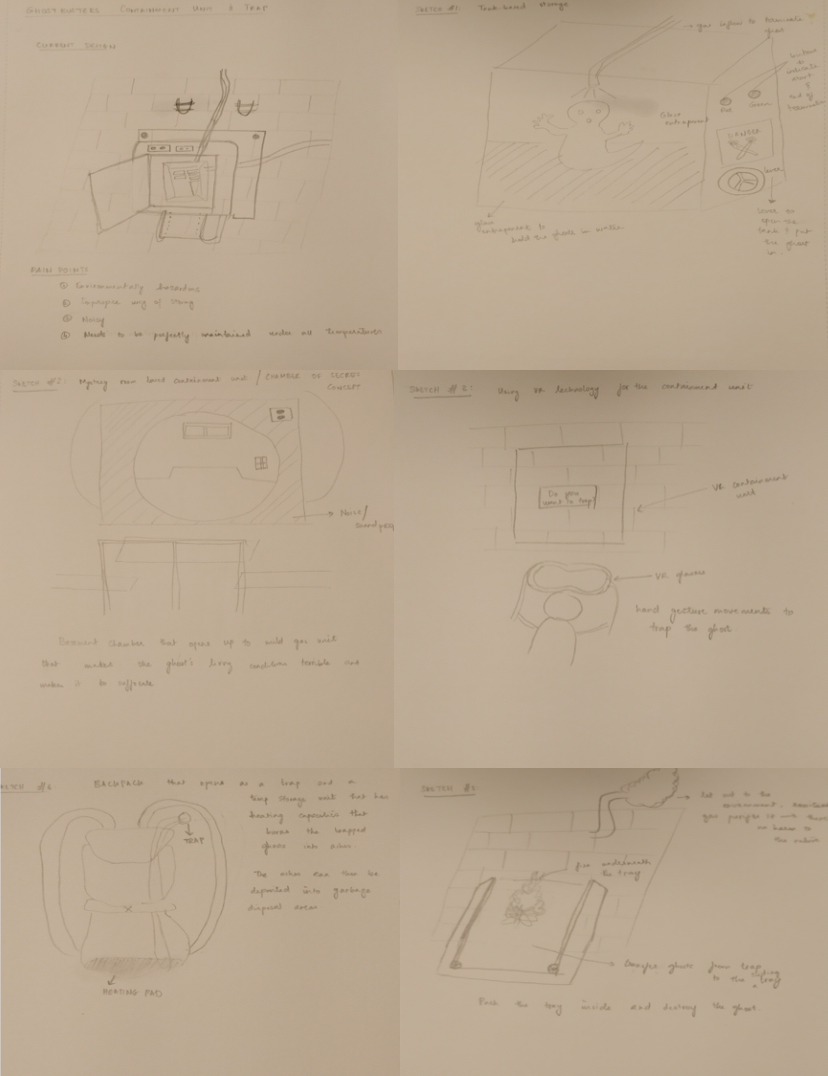 GHOSTBUSTERS CONTAINMENT UNIT & TRAP
CURRENT DESIGN
MAIN POINTS
① Environmentally hazardous
② Improper way of storing
③ Noisy
④ Needs to be perfectly maintained under all temperatures
SKETCH #1: Tank-based storage
→ gas inflow to terminate
ghost
buttons
to
indicate
start
&
end of
Start
Ghost
entrapment
DANGER
lever
lever to
open the
tank & put
the ghost
in
glass
entrapment to
hold the ghosts in
SKETCH #2: Mystery room based containment unit / CHAMBER OF SECRETS
CONCEPT
Noise/
Basement chamber that opens up to mild gas unit
that makes the ghost's living conditions terrible and
makes it to suffocate
SKETCH # 3: Using VR technology for the containment unit
Do you
want to trap?
VR containment
unit
VR glasses
hand gesture movements to
trap the ghost
SKETCH #4 BACKPACK that opens as a trap and a
temp storage unit that has
heating capacities that
burns the trapped
ghosts into ashes.
TRAP
The ashes can then be
deposited into garbage
disposal areas
HEATING PAD
SKETCH #5:
let out to the
environment.
no harm to
the nature
fire underneath
the tray
Transfer ghosts from trap
to the sliding
tray
Push the tray inside and destroy the ghost.